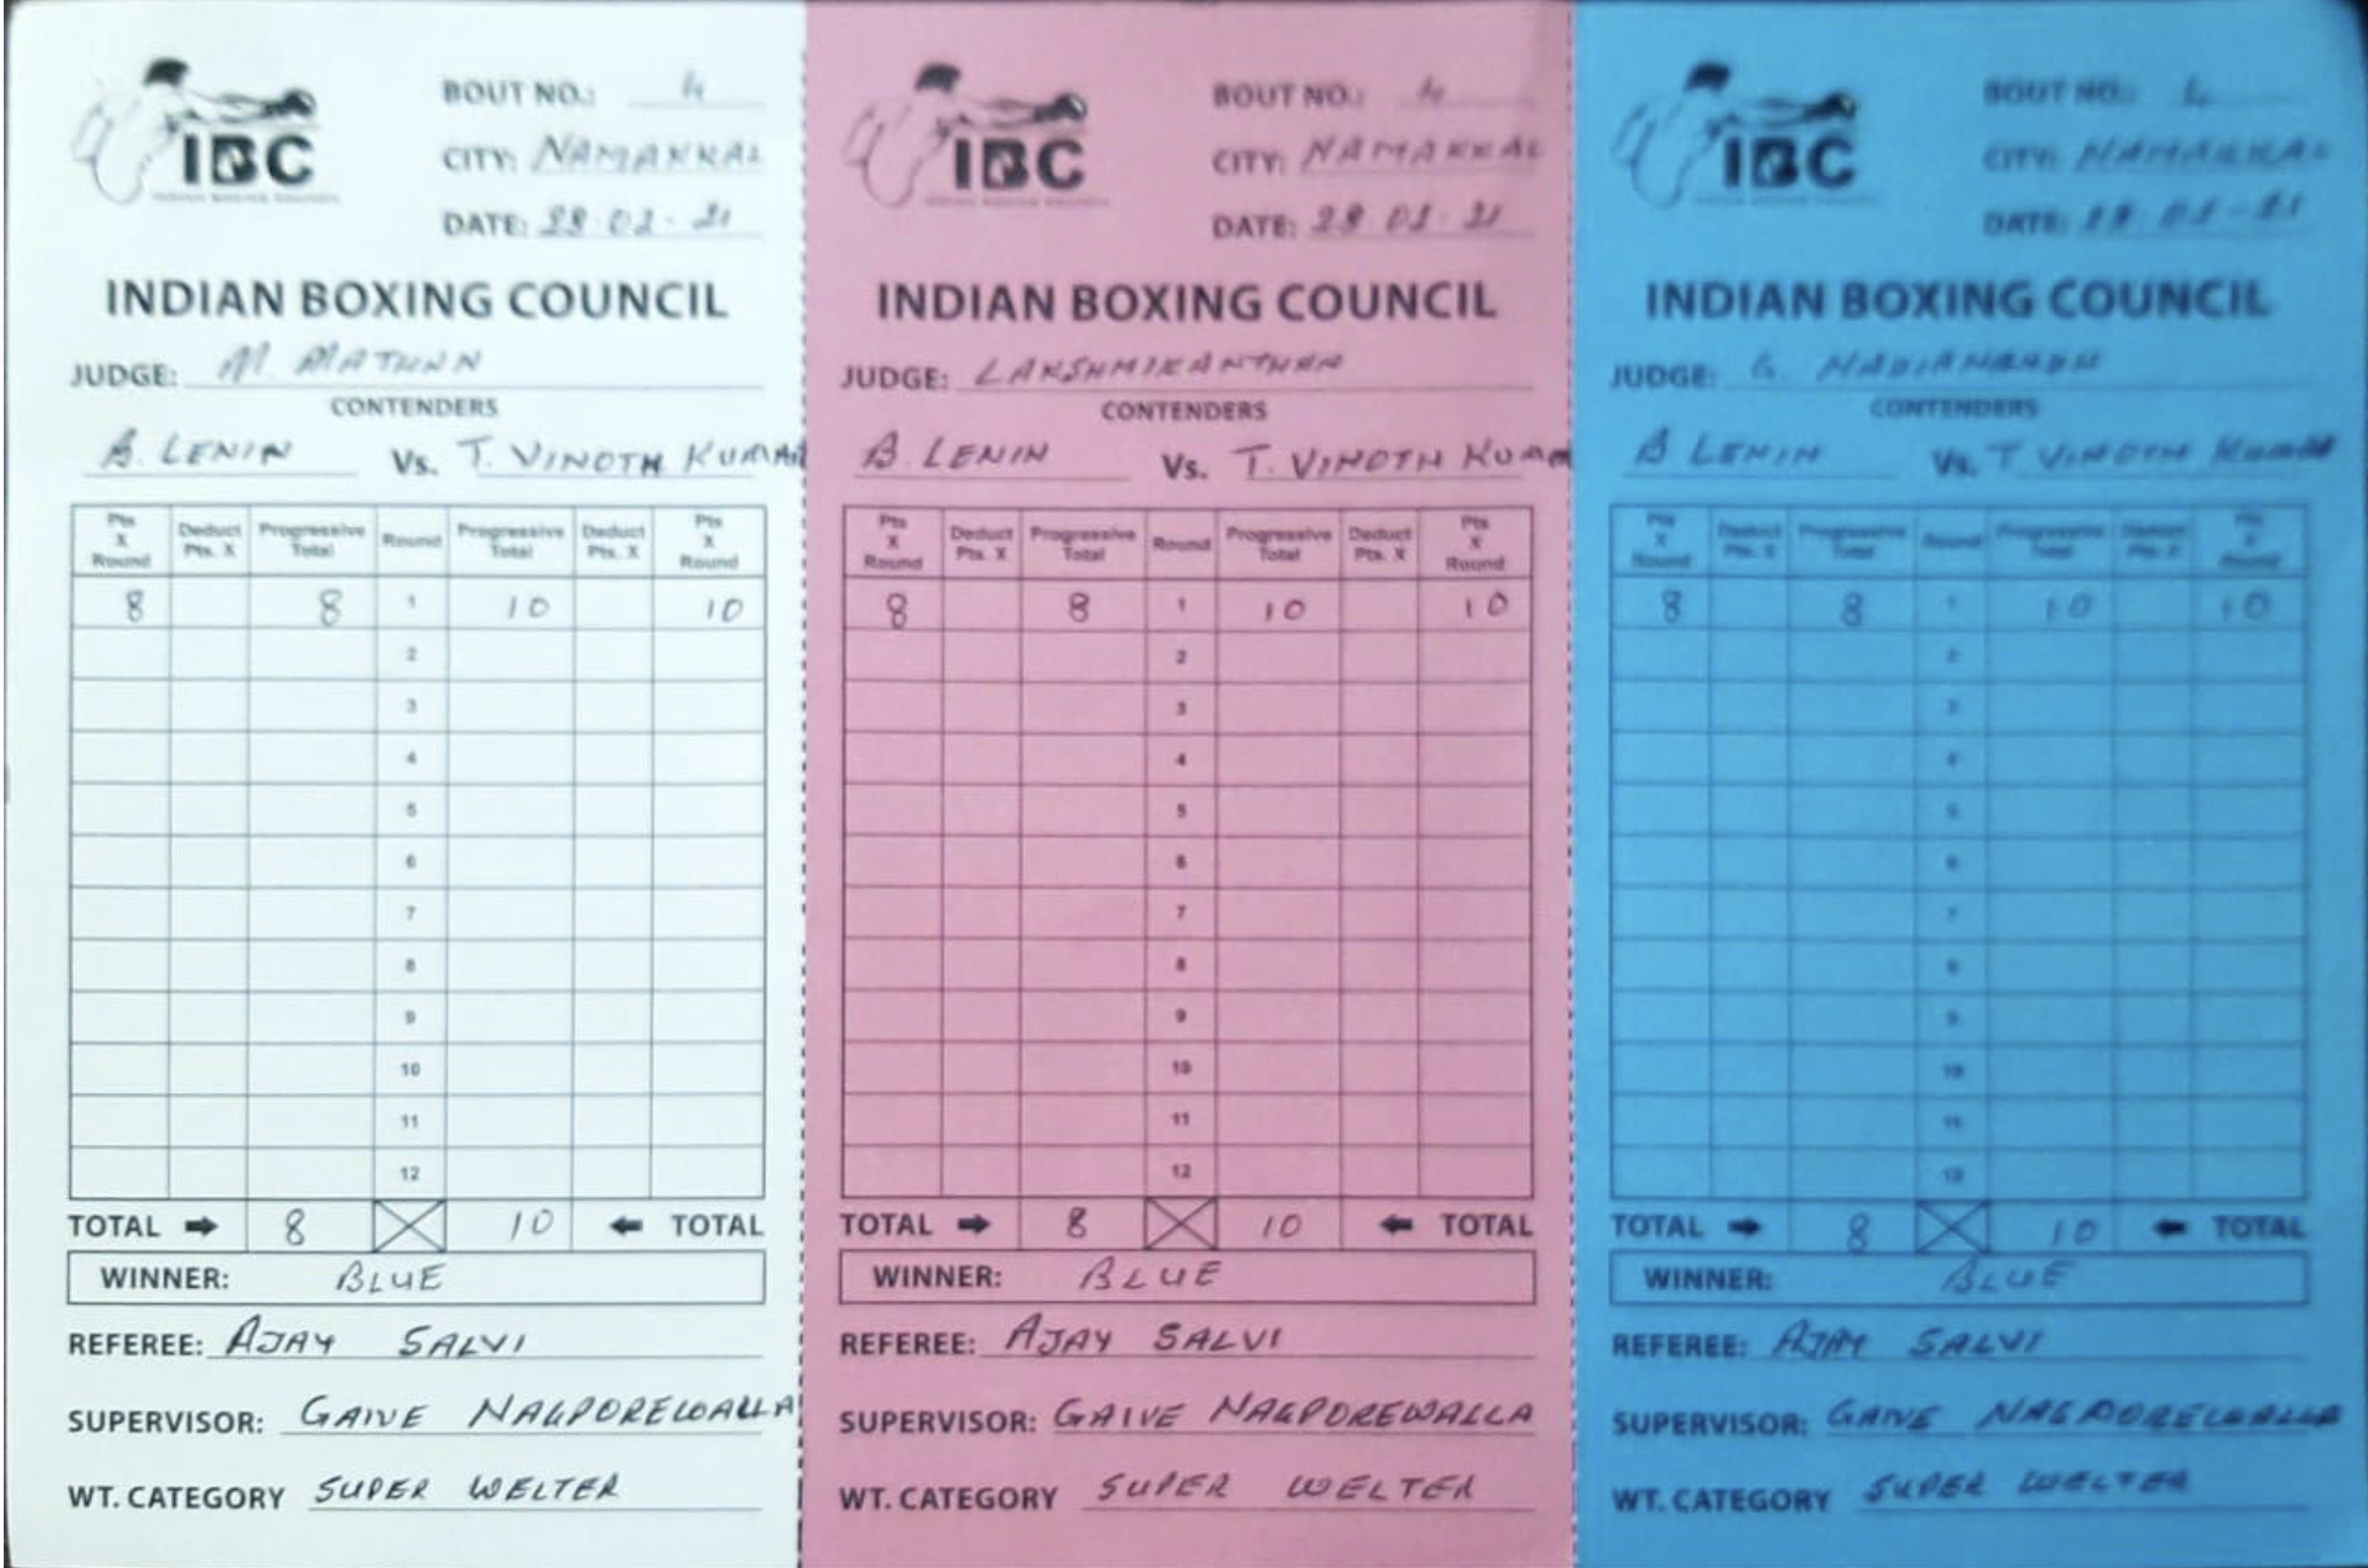 IBC
INDIAN BOXING COUNCIL
BOUT NO.: 4
CITY: NAMAKKAL
DATE: 28.02.21
INDIAN BOXING COUNCIL
JUDGE: M.
CONTENDERS
B. LENIN Vs. T. VINOTH KUMAR
Pts X Round Deduct Pts. X Progressive Total Round Progressive Total Deduct Pts. X Pts X Round
8 8 1 10 10
2
3
4
5
6
7
8
9
10
11
12
TOTAL 8 10 TOTAL
WINNER: BLUE
REFEREE: AJAY SALVI
SUPERVISOR: GAIVE NAGPOREWALLA
WT. CATEGORY SUPER WELTER
IBC
INDIAN BOXING COUNCIL
BOUT NO.: 4
CITY: NAMAKKAL
DATE: 28 02 21
INDIAN BOXING COUNCIL
JUDGE: LAKSHMIKANTHAN
CONTENDERS
B. LENIN Vs. T. VINOTH
Pts X Round Deduct Pts. X Progressive Total Round Progressive Total Deduct Pts. X Pts X Round
8 8 1 10 10
2
3
4
5
6
7
8
9
10
11
12
TOTAL 8 10 TOTAL
WINNER: BLUE
REFEREE: AJAY SALVI
SUPERVISOR: GAIVE NAGPOREWALLA
WT. CATEGORY SUPER WELTER
IBC
BOUT NO.: 4
CITY: NAMAKKAL
DATE: 28 02-21
INDIAN BOXING COUNCIL
JUDGE: G.
CONTENDERS
B LENIN Vs. T VINOTH KUMAR
Pts X Round Deduct Pts. X Progressive Total Round Progressive Total Deduct Pts. X Pts X Round
8 8 1 10 10
2
3
4
5
6
7
8
9
10
11
12
TOTAL 8 10 TOTAL
WINNER: BLUE
REFEREE: AJAY SALVI
SUPERVISOR: GAIVE NAGPOREWALLA
WT. CATEGORY SUPER WELTER